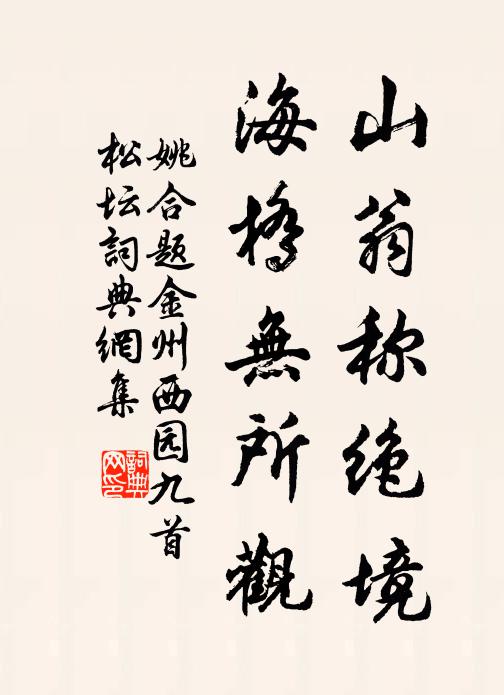 山翁称绝境
海桥無所觀
姚合题金州西园九首
松坛詞典網集
詞典网印